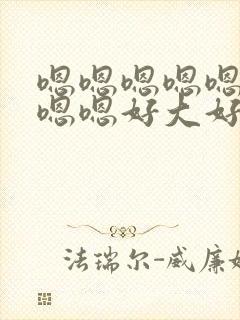 嗯嗯嗯嗯嗯
嗯嗯好大好
法瑞尔-威廉